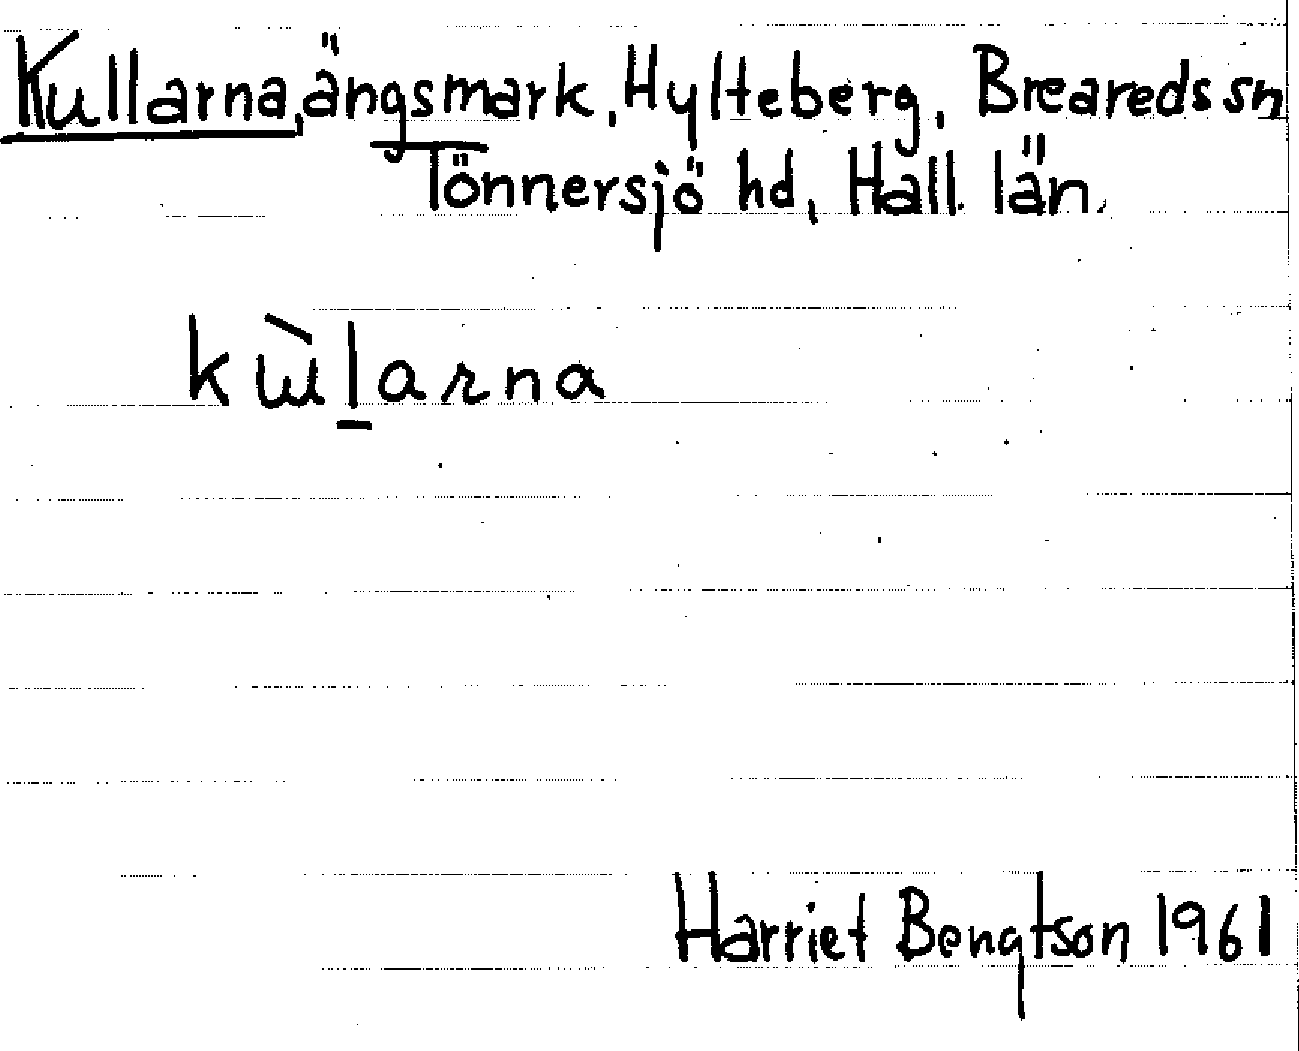 Kullarna, ängsmark, Hylteberg, Breareds sn
Tönnersjö hd, Hall. län.
kɯ̀l̠arna
Harriet Bengtson 1961